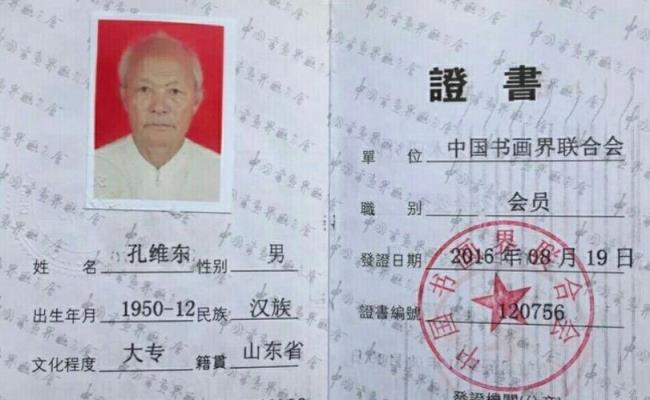 姓 名 孔维东 性别 男
出生年月 1950-12 民族 汉族
文化程度 大专 籍貫 山东省
證書
單 位 中国书画界联合会
職 别 会员
發證日期 2016年08月19日
證書編號 120756
中国书画界联合会